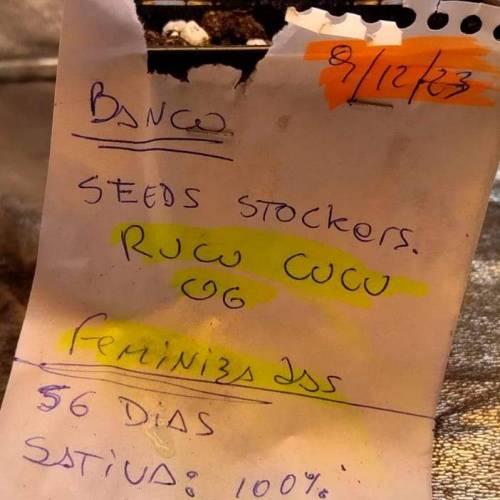 9/12/23
BANCO
SEEDS STOCKERS.
RUCU CUCU
OG
FEMINIZADAS
56 DIAS
SATIVA: 100%